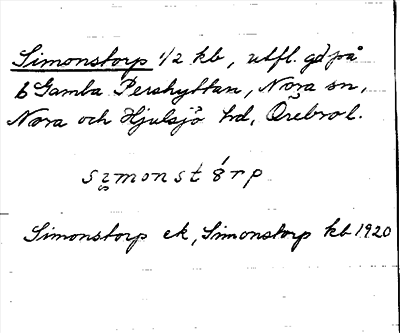 Simonstorp 1/2 kb, utfl. gd på
6 Gamba Pershyttan, Nora sn,
Nora och Hjulsjö hd, Örebro l.
simonstȣ́rp
Simonstorp ek, Simonstorp kb 1920